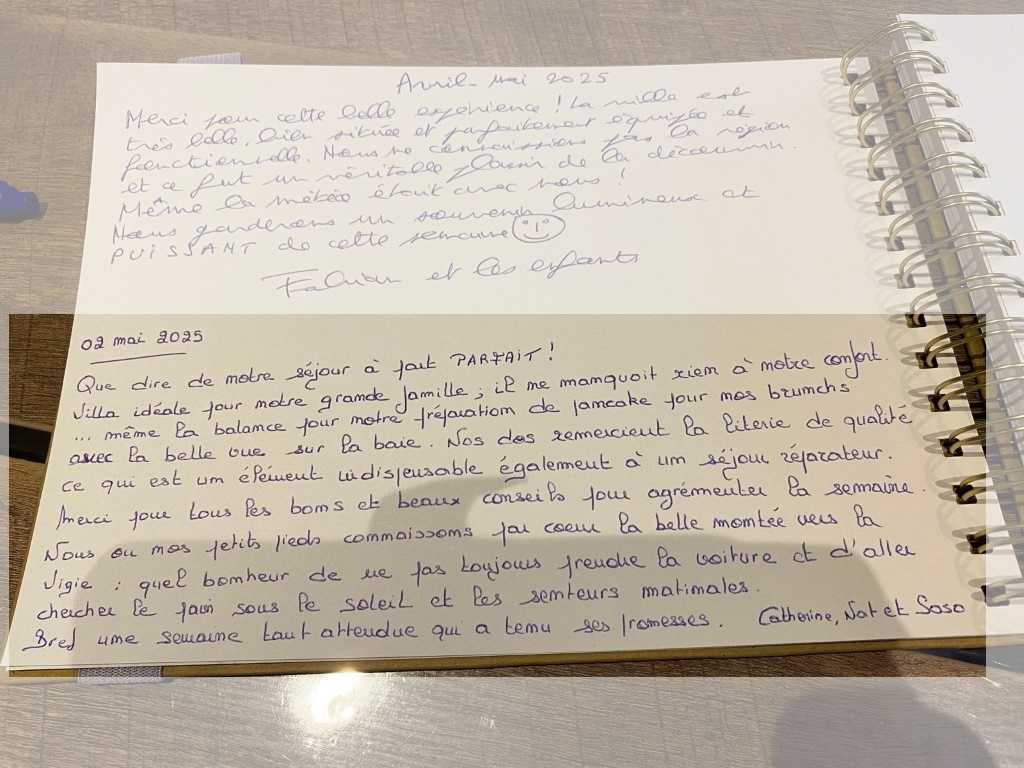 Avril - Mai 2025
Merci pour cette belle expérience ! La villa est
très belle, bien située et parfaitement équipée et
fonctionnelle. Nous ne connaissions pas la région
et ce fut un véritable plaisir de la découvrir.
Même la météo était avec nous !
Nous garderons un souvenir lumineux et
PUISSANT de cette semaine
et les enfants
02 mai 2025
Que dire de notre séjour à part PARFAIT !
Villa idéale pour notre grande famille ; il ne manquait rien à notre confort.
... même la balance pour notre préparation de pancake pour nos brunchs
avec la belle vue sur la baie. Nos dos remercient la literie de qualité
ce qui est un élément indispensable également à un séjour réparateur.
Merci pour tous les bons et beaux conseils pour agrémenter la semaine.
Nous ou nos petits pieds connaissons par coeur la belle montée vers la
Vigie : quel bonheur de ne pas toujours prendre la voiture et d'aller
chercher le pain sous le soleil et les senteurs matinales.
Bref une semaine tant attendue qui a tenu ses promesses. Catherine, Nat et Soso